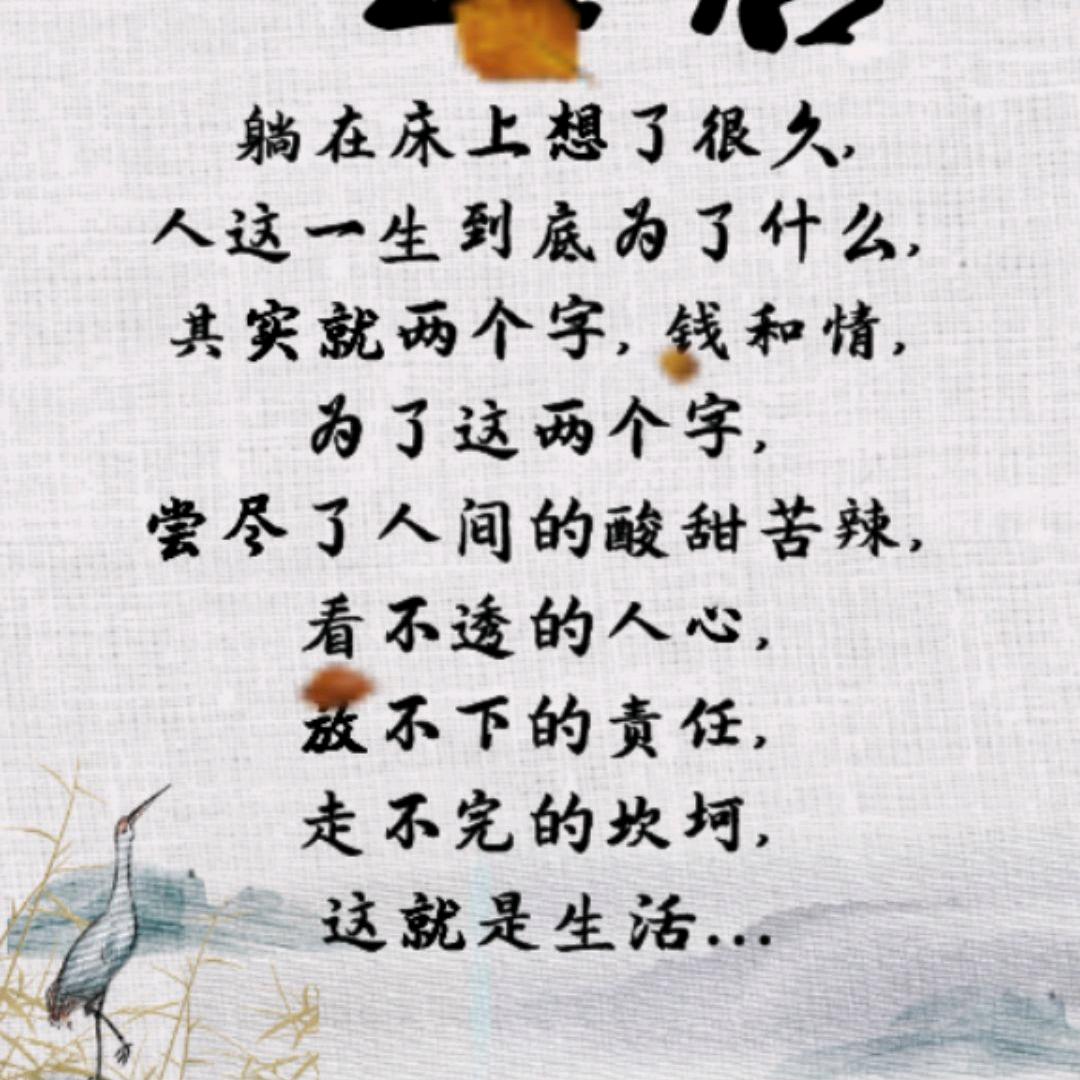 躺在床上想了很久,
人这一生到底为了什么,
其实就两个字,钱和情,
为了这两个字,
尝尽了人间的酸甜苦辣,
看不透的人心,
放不下的责任,
走不完的坎坷,
这就是生活...